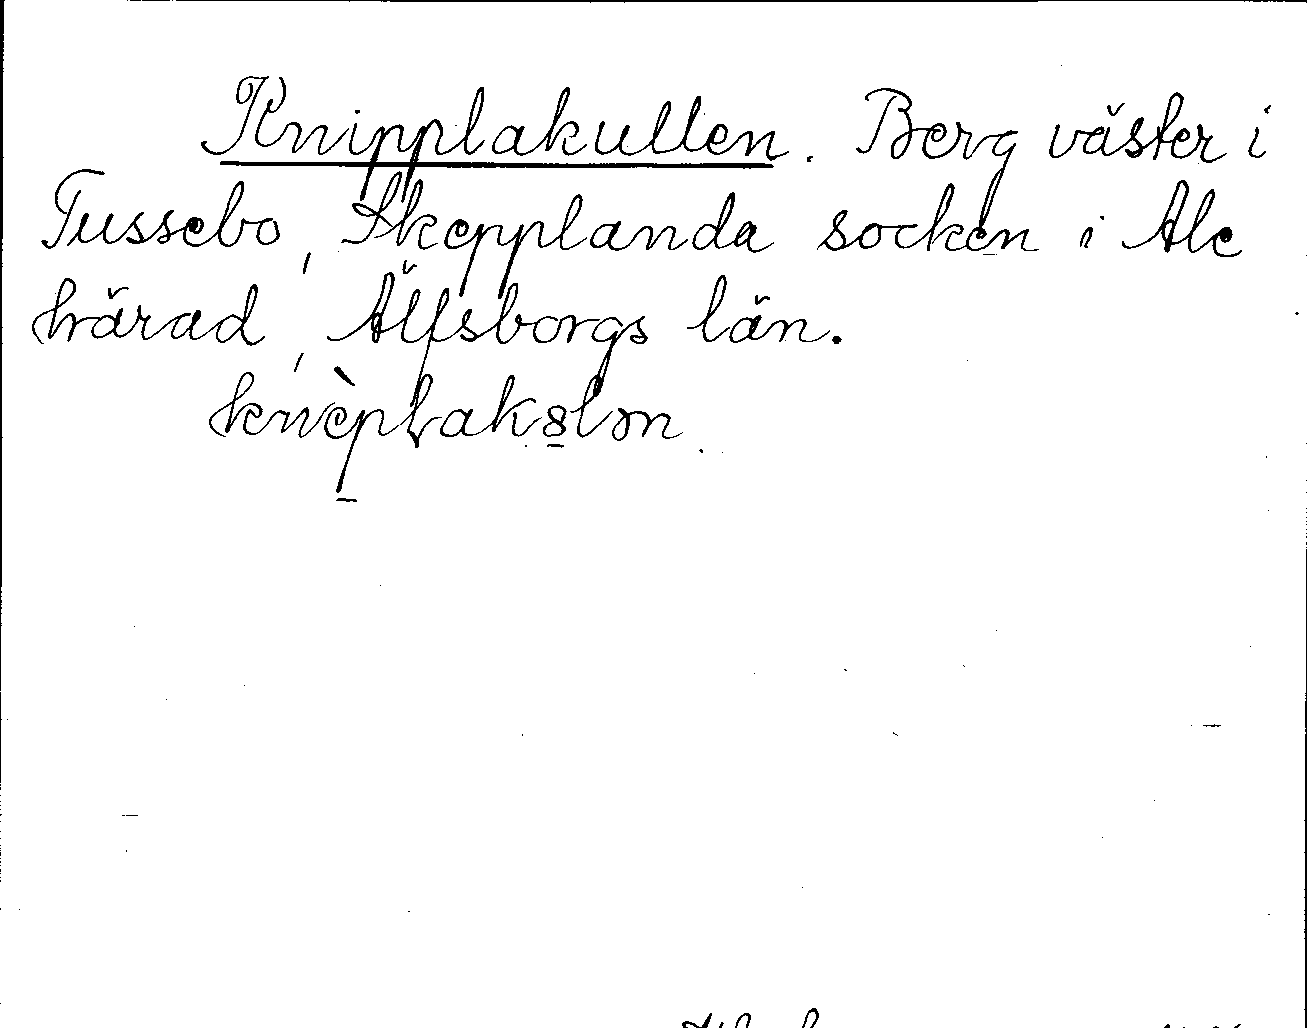 Knipplakullen. Berg väster i
Tussebo, Skepplanda socken i Ale
härad, Älfsborgs län.